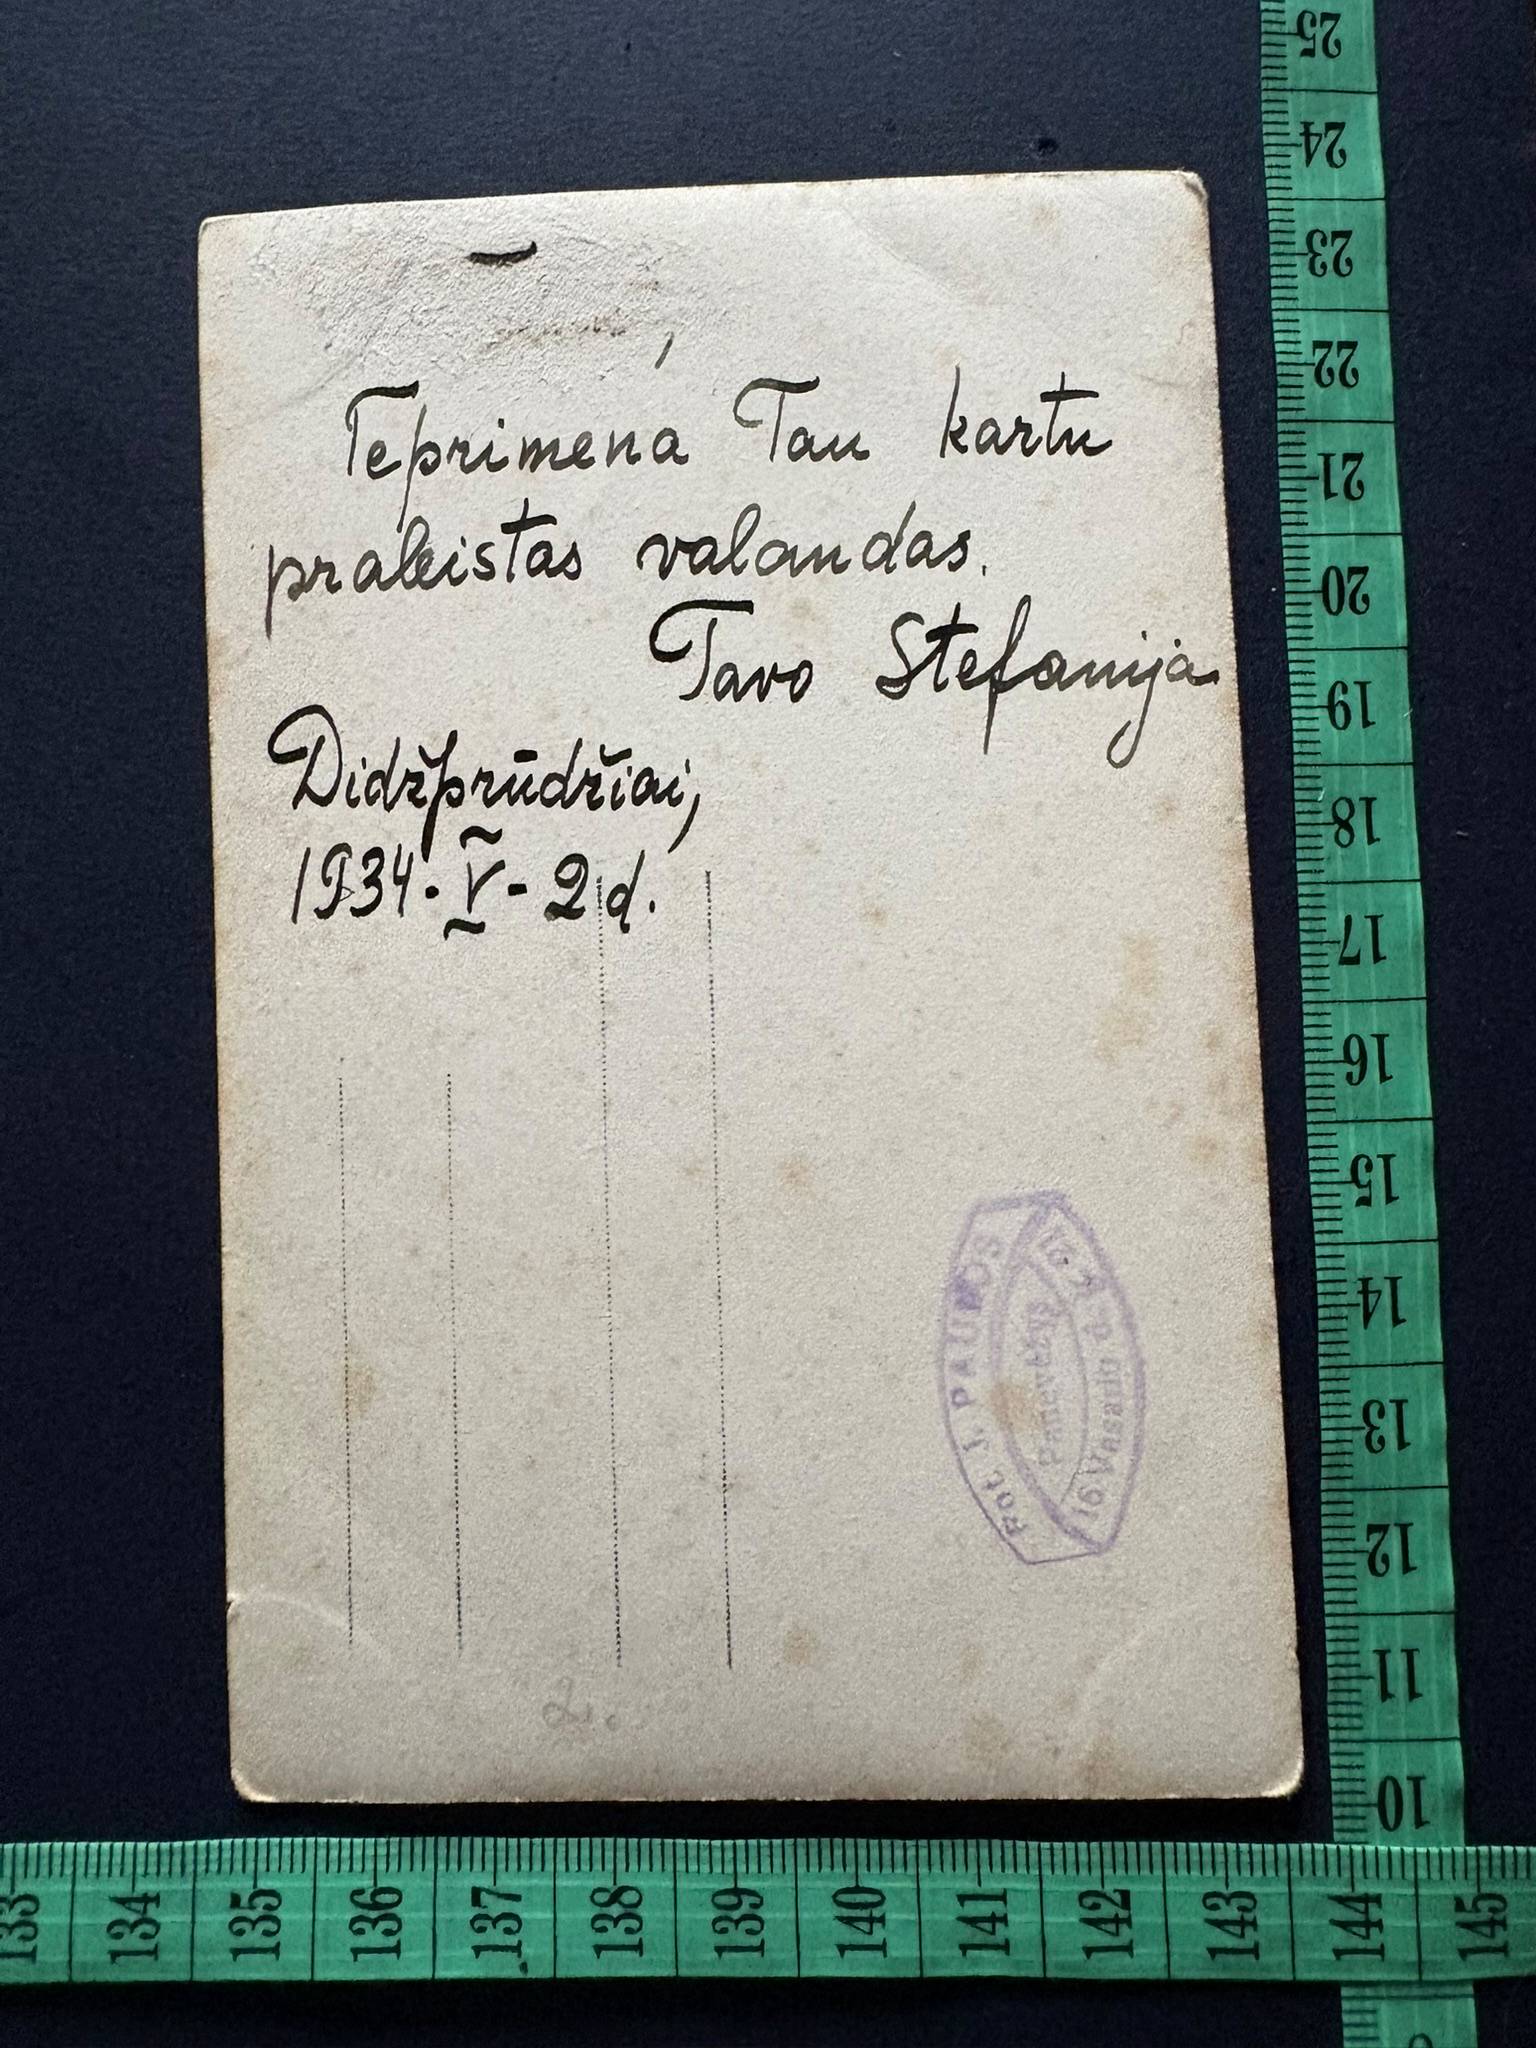 Teprimena Tau kartu
praleistas valandas.
Tavo Stefanija
Didžprūdžiai,
1934. V - 2 d.
Fot. J. PAUROS
Panevėžys
16 Vasario g.
2.
25
24
23
22
21
20
19
18
17
16
15
14
13
12
11
10
133 134 135 136 137 138 139 140 141 142 143 144 145